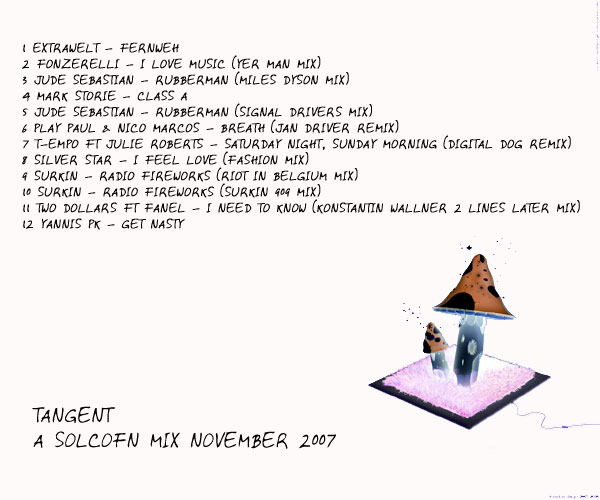 1 EXTRAWELT – FERNWEH
2 FONZERELLI – I LOVE MUSIC (YER MAN MIX)
3 JUDE SEBASTIAN – RUBBERMAN (MILES DYSON MIX)
4 MARK STORIE – CLASS A
5 JUDE SEBASTIAN – RUBBERMAN (SIGNAL DRIVERS MIX)
6 PLAY PAUL & NICO MARCOS – BREATH (JAN DRIVER REMIX)
7 T-EMPO FT JULIE ROBERTS – SATURDAY NIGHT, SUNDAY MORNING (DIGITAL DOG REMIX)
8 SILVER STAR – I FEEL LOVE (FASHION MIX)
9 SURKIN – RADIO FIREWORKS (RIOT IN BELGIUM MIX)
10 SURKIN – RADIO FIREWORKS (SURKIN 909 MIX)
11 TWO DOLLARS FT FANEL – I NEED TO KNOW (KONSTANTIN WALLNER 2 LINES LATER MIX)
12 YANNIS PK – GET NASTY
TANGENT
A SOLCOFN MIX NOVEMBER 2007